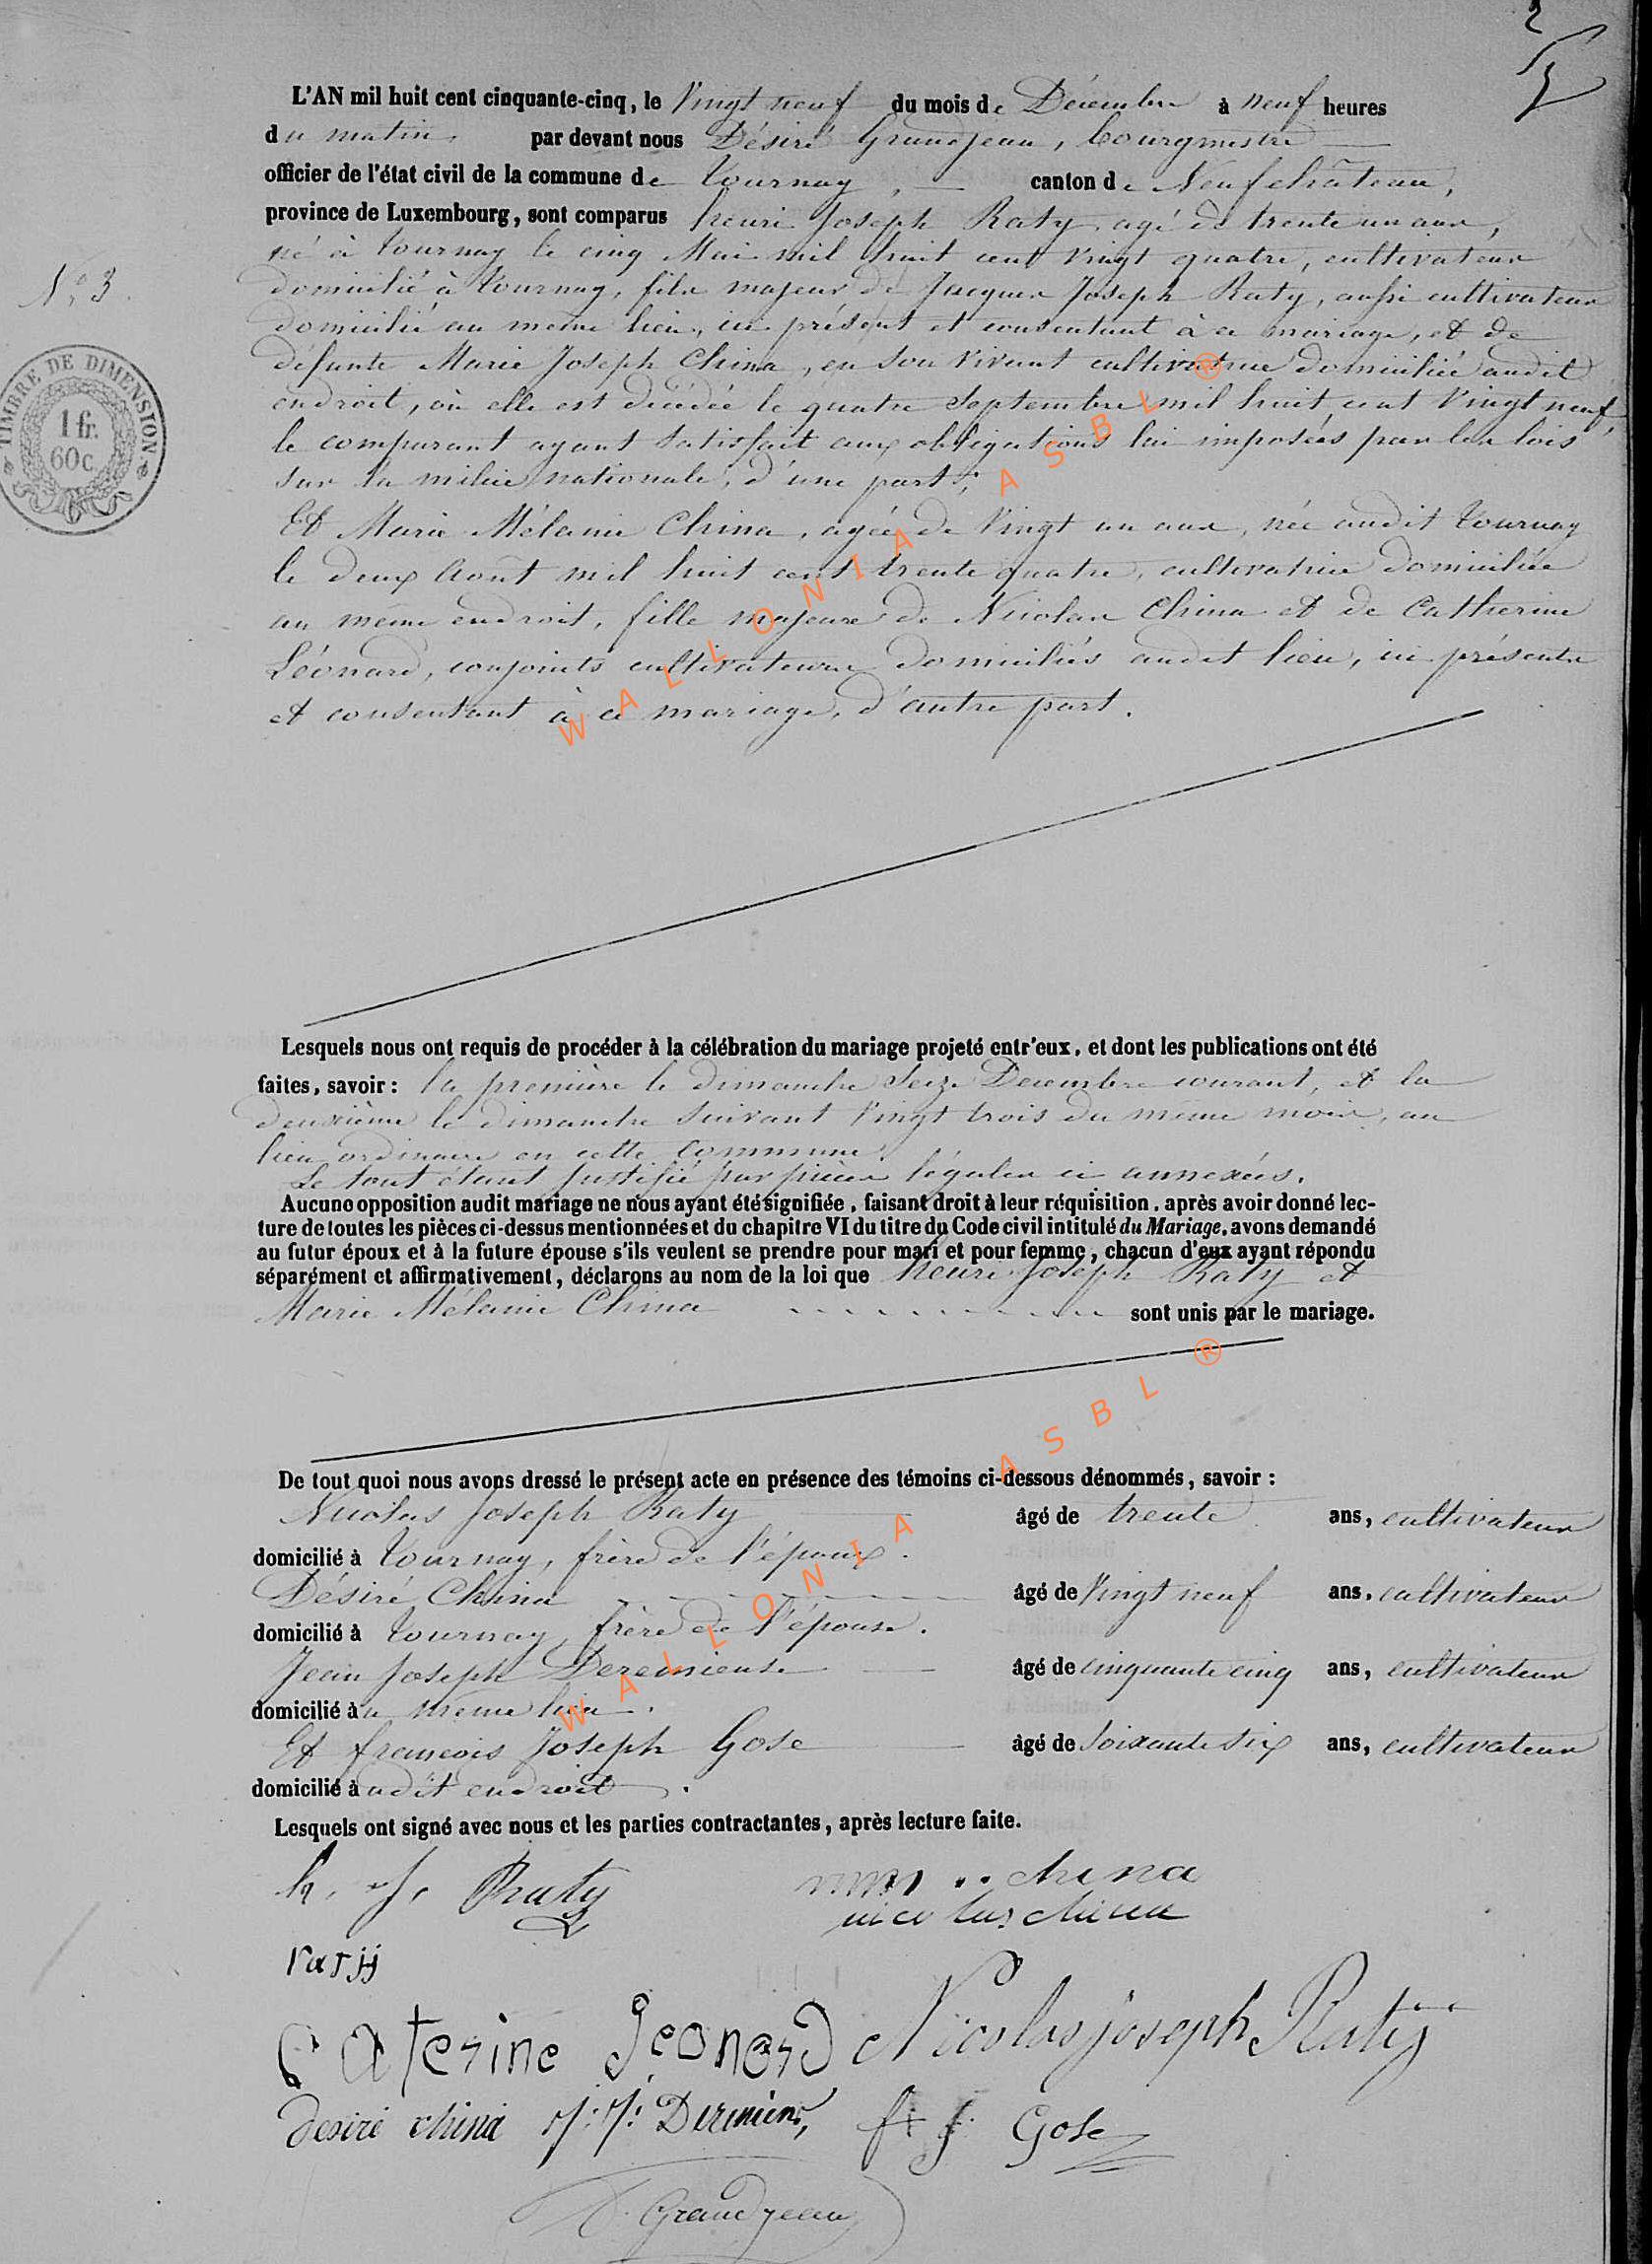 2
L'AN mil huit cent cinquante-cinq, le Vingt neuf du mois de Décembre à neuf heures
du matin, par devant nous Désiré Grandjean, bourgmestre
officier de l'état civil de la commune de Tournay, canton de Neufchâteau,
province de Luxembourg, sont comparus henri Joseph Raty, agé de trente un ans,
né à Tournay le cinq Mai mil huit cent vingt quatre, cultivateur
N° 3.
domicilié à Tournay, fils majeur de Jacques Joseph Raty, aussi cultivateur
domicilié au même lieu, ici présent et consentant à ce mariage, et de
défunte Marie Joseph China, en son vivant cultivatrice domiciliée audit
endroit, où elle est décédée le quatre Septembre mil huit cent Vingt neuf,
le comparant ayant satisfait aux obligations lui imposées par les lois
sur la milice nationale, d'une part;
TIMBRE DE DIMENSION
1 fr.
60c
Et Marie Mélanie China, agée de Vingt un ans, née audit Tournay
le deux Août mil huit cent trente quatre, cultivatrice domiciliée
au même endroit, fille majeure de Nicolas China et de Catherine
Léonard, conjoints cultivateurs domiciliés audit lieu, ici présents
et consentant à ce mariage, d'autre part.
WALLONIA ASBL ®
Lesquels nous ont requis de procéder à la célébration du mariage projeté entr'eux, et dont les publications ont été
faites, savoir: la première le dimanche Seize Décembre courant, et la
deuxième le dimanche suivant Vingt trois du même mois, au
lieu ordinaire en cette commune.
Le tout étant justifié par pièces légales ci annexées.
Aucune opposition audit mariage ne nous ayant été signifiée, faisant droit à leur réquisition, après avoir donné lec-
ture de toutes les pièces ci-dessus mentionnées et du chapitre VI du titre du Code civil intitulé du Mariage, avons demandé
au futur époux et à la future épouse s'ils veulent se prendre pour mari et pour femme, chacun d'eux ayant répondu
séparément et affirmativement, déclarons au nom de la loi que henri Joseph Raty et
Marie Mélanie China sont unis par le mariage.
De tout quoi nous avons dressé le présent acte en présence des témoins ci-dessous dénommés, savoir:
Nicolas Joseph Raty âgé de trente ans, cultivateur
domicilié à Tournay, frère de l'époux.
Désiré China âgé de Vingt neuf ans, cultivateur
domicilié à Tournay, frère de l'épouse.
Jean Joseph âgé de cinquante cinq ans, cultivateur
domicilié au même lieu.
Et françois Joseph Gose âgé de soixante six ans, cultivateur
domicilié audit endroit.
WALLONIA ASBL ®
Lesquels ont signé avec nous et les parties contractantes, après lecture faite.
h. J. Raty china
nicolas china
raty
Caterine Leonard Nicolas joseph Raty
desiré china J: J: f: J: Gose
D. Grandjean